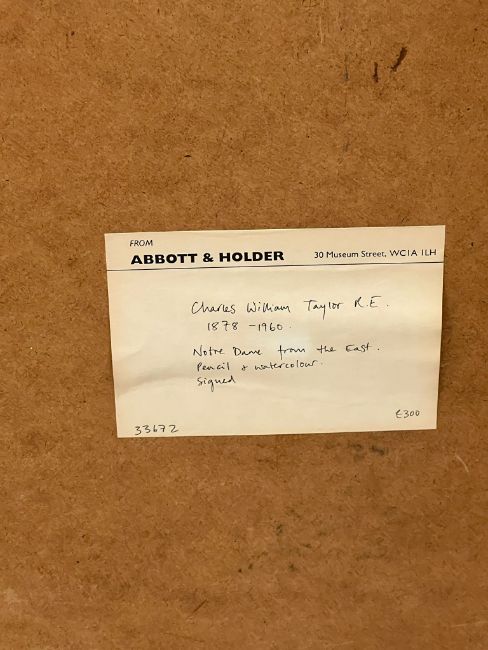 FROM
ABBOTT & HOLDER 30 Museum Street, WC1A 1LH
Charles William Taylor R.E.
1878 - 1960.
Notre Dame from the East.
Pencil & watercolour.
Signed
£300
33672